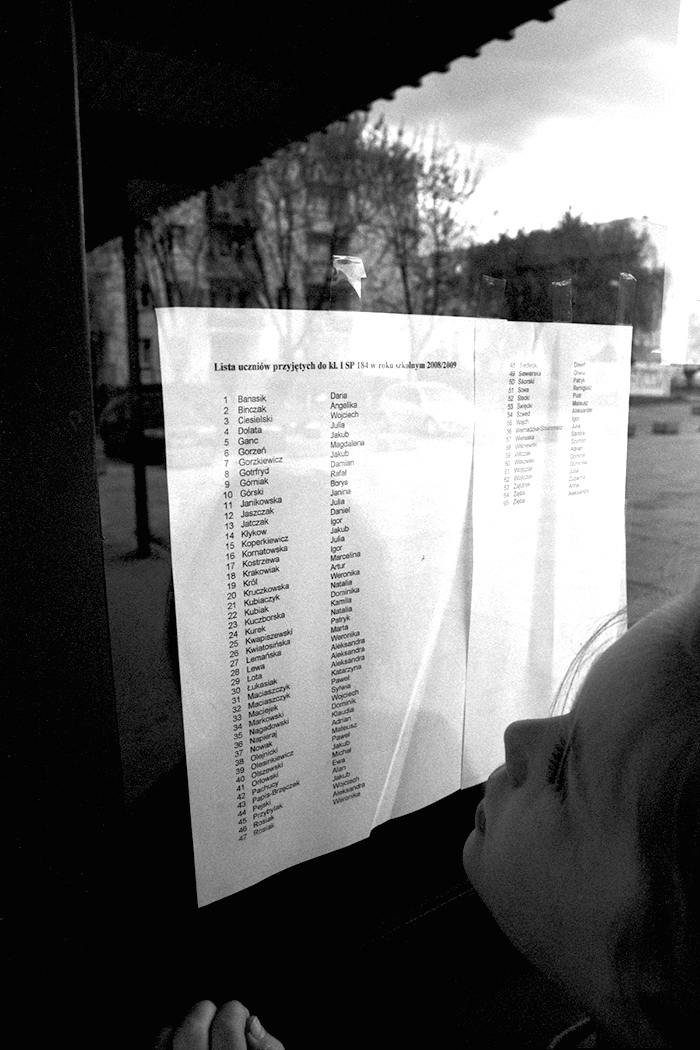 Lista uczniów przyjętych do kl. I SP 184 w roku szkolnym 2008/2009
1 Banasik Daria
2 Binczak Angelika
3 Ciesielski Wojciech
4 Dolata Julia
5 Ganc Jakub
6 Gorzeń Magdalena
7 Gorzkiewicz Jakub
8 Gotrfryd Damian
9 Górniak Rafał
10 Górski Borys
11 Janikowska Janina
12 Jaszczak Julia
13 Jatczak Daniel
14 Kłykow Igor
15 Koperkiewicz Jakub
16 Kornatowska Julia
17 Kostrzewa Igor
18 Krakowiak Marcelina
19 Król Artur
20 Kruczkowska Weronika
21 Kubiaczyk Natalia
22 Kubiak Dominika
23 Kuczborska Kamila
24 Kurek Natalia
25 Kwapiszewski Patryk
26 Kwiatosińska Marta
27 Lemańska Weronika
28 Lewa Aleksandra
29 Lota Aleksandra
30 Łukasiak Aleksandra
31 Maciaszczyk Katarzyna
32 Maciaszczyk Paweł
33 Maciejek Sylwia
34 Markowski Wojciech
35 Nagadowski Dominik
36 Napieraj Klaudia
37 Nowak Adrian
38 Olejnicki Mateusz
39 Olesinkiewicz Paweł
40 Olszewski Jakub
41 Orłowski Michał
42 Pachucy Ewa
43 Papis-Brzęczek Alan
44 Pejski Jakub
45 Przybylak Wojciech
46 Rosiak Aleksandra
47 Rosiak Weronika
48 Dawid
49 Siewierska Oliwia
50 Sikorski Patryk
51 Sowa Remigiusz
52 Stecki Piotr
53 Święcki Mateusz
54 Szwed Aleksander
55 Igor
56 Julia
57 Sandra
58 Wiśniewski Szymon
59 Witczak Adrian
60 Witkowski Dominik
61 Wojtczak Dominika
62 Wojtczak Julia
63 Zuzanna
64 Zięba Anna
65 Zięba Aleksandra